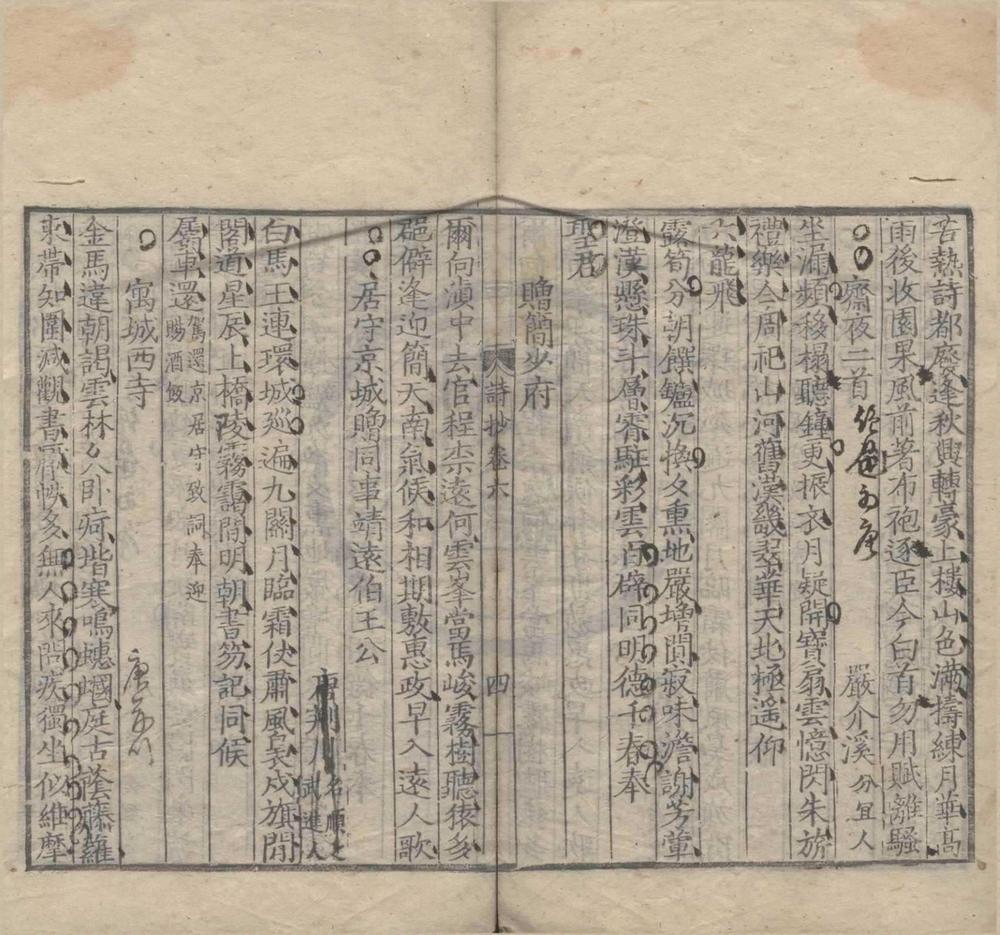 苦熱詩都廢逢秋興轉豪上樓山色滿擣練月華高
雨後收園果風前著布袍逐臣今白首勿用賦離騷
齋夜二首 嚴介溪 分宜人
坐漏頻移榻聽鐘更振衣月疑開寶扇雲憶閃朱旂
禮樂今周祀山河舊漢畿翠華天北極遥仰
六龍飛
露筍分朝饌鑪沉換夕熏地嚴增闃寂味澹謝芳葷
澄漢懸珠斗層霄駐彩雲百辟同明德千春奉
聖君
贈簡少府
詩抄卷六 四
爾向滇中去官程柰遠何雲峯當馬峻霧樹聽猿多
郡僻逢迎簡天南氣候和相期敷惠政早入遠人歌
居守京城贈同事靖遠伯王公
唐荆川 名順之 武進人
白馬王連環城巡遍九關月臨霜伏肅風裊戍旗閒
閣道星辰上橋陵霧靄間明朝書笏記同候
屬車還 駕還京居守致詞奉迎賜酒飯
寓城西寺
金馬違朝謁雲林方臥痾堦寒鳴蟪蟈庭古蔭藤蘿
束帶知圍減觀書廢帙多無人來問疾獨坐似維摩